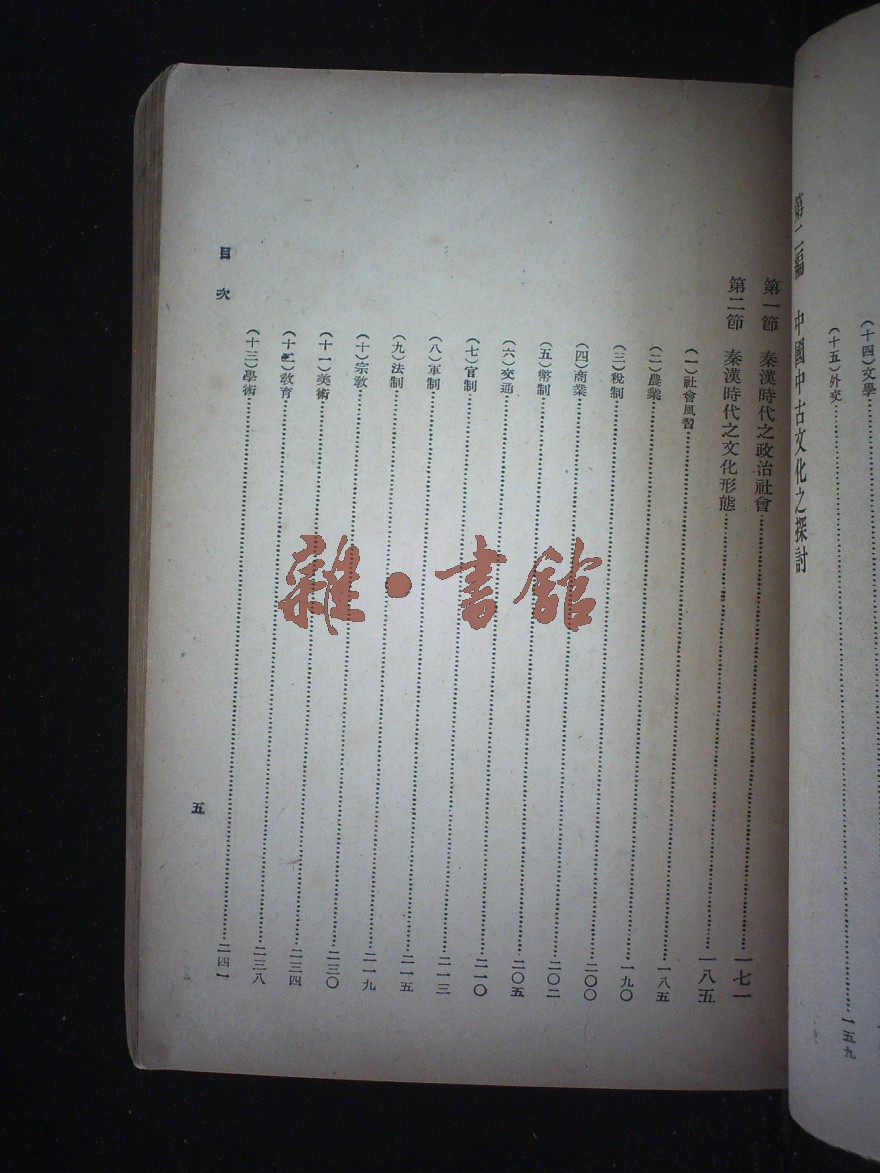 (十四)文學
(十五)外交……一五九
第二編 中國中古文化之探討
第一節 秦漢時代之政治社會……一七一
第二節 秦漢時代之文化形態……一八五
(一)社會風習……一八五
(二)農業……一九〇
(三)稅制……二〇〇
(四)商業……二〇二
(五)幣制……二〇五
(六)交通……二一〇
(七)官制……二一三
(八)軍制……二一五
(九)法制……二一九
(十)宗教……二三〇
(十一)美術……二三四
(十二)教育……二三八
(十三)學術……二四一
目次
五
雜·書館